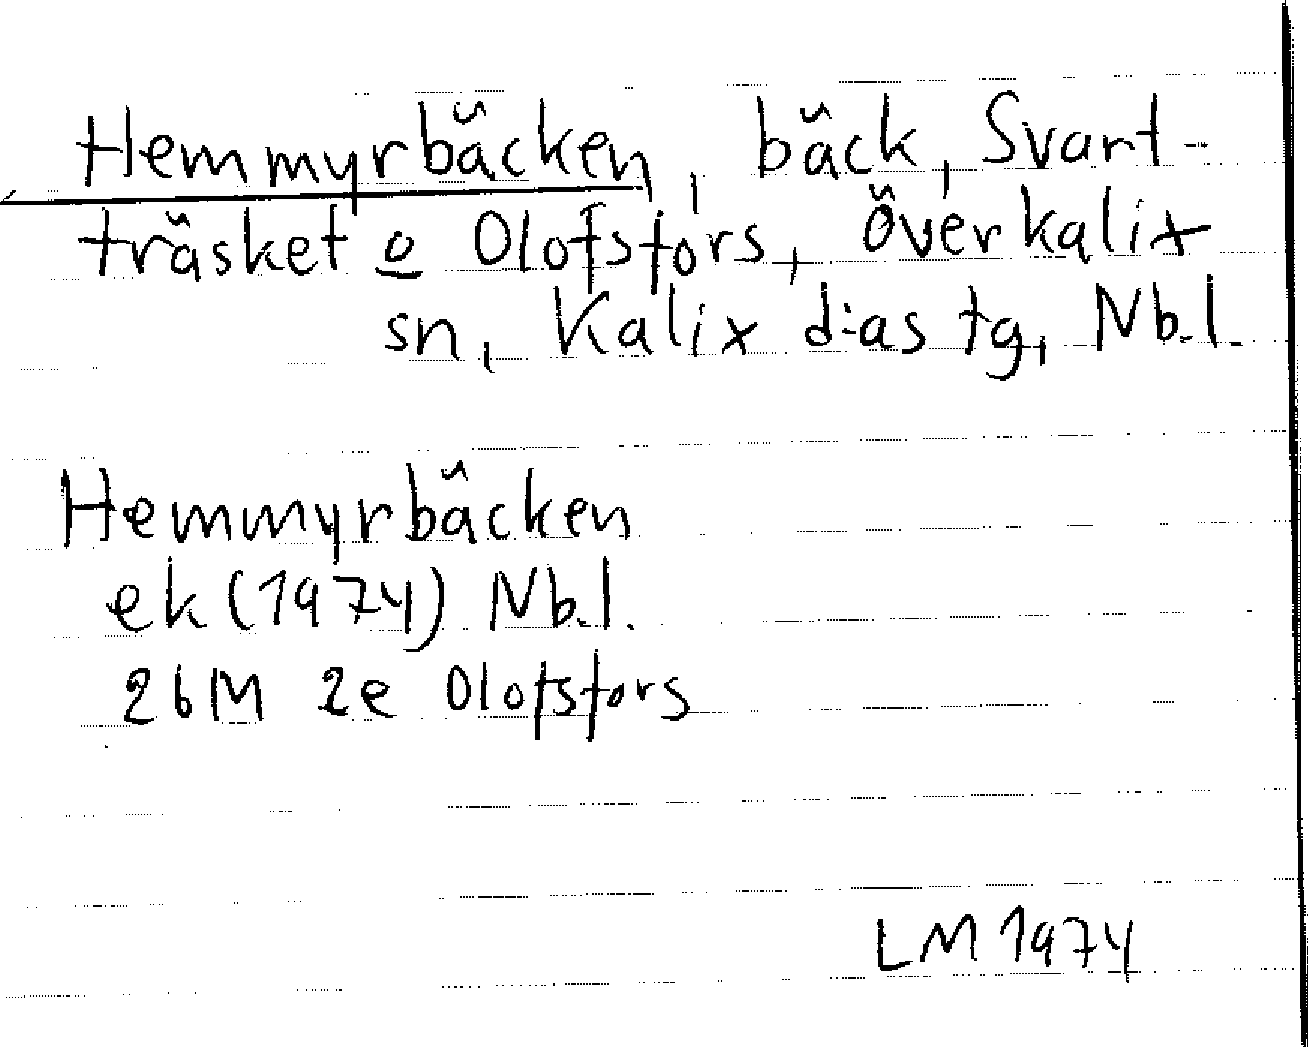 Hemmyrbäcken, bäck, Svart-
träsket o Olofsfors, Överkalix
sn, Kalix d:as tg, Nb.l.
Hemmyrbäcken
ek (1974) Nb.l.
26M 2e Olofsfors
LM 1974